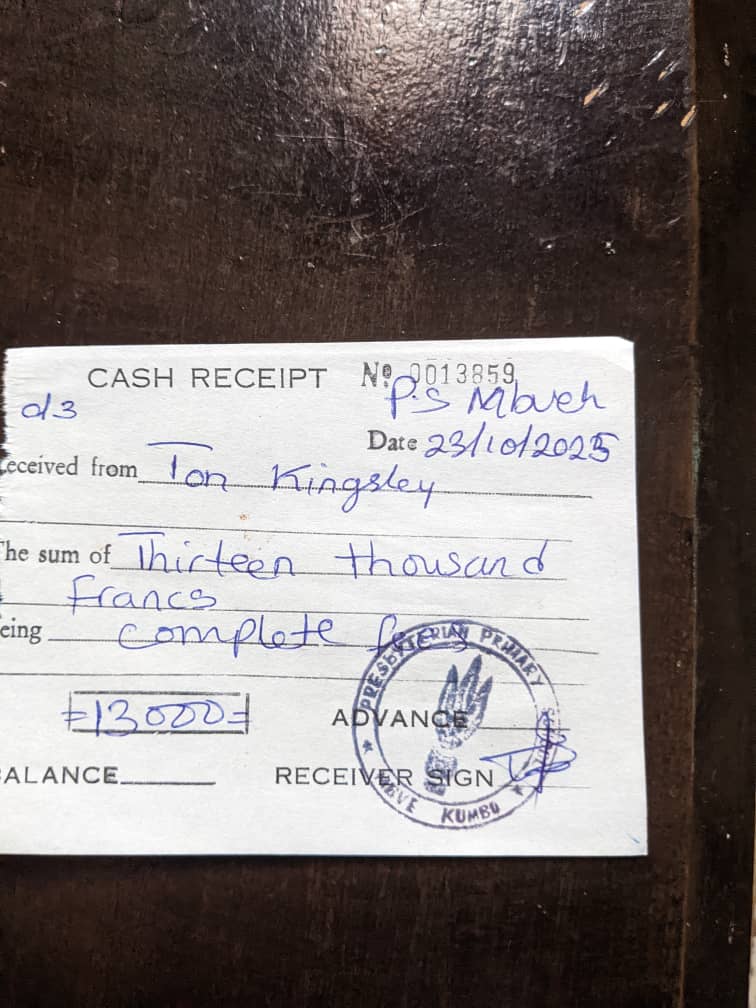 CASH RECEIPT Nº 0013859
P.S Mbveh
cl3
Date 23/10/2025
eceived from Ton Kingsley
he sum of Thirteen thousand
Francs
eing complete fees
=13000= ADVANCE
ALANCE RECEIVER SIGN
PRESBYTERIAN PRIMARY
KUMBO